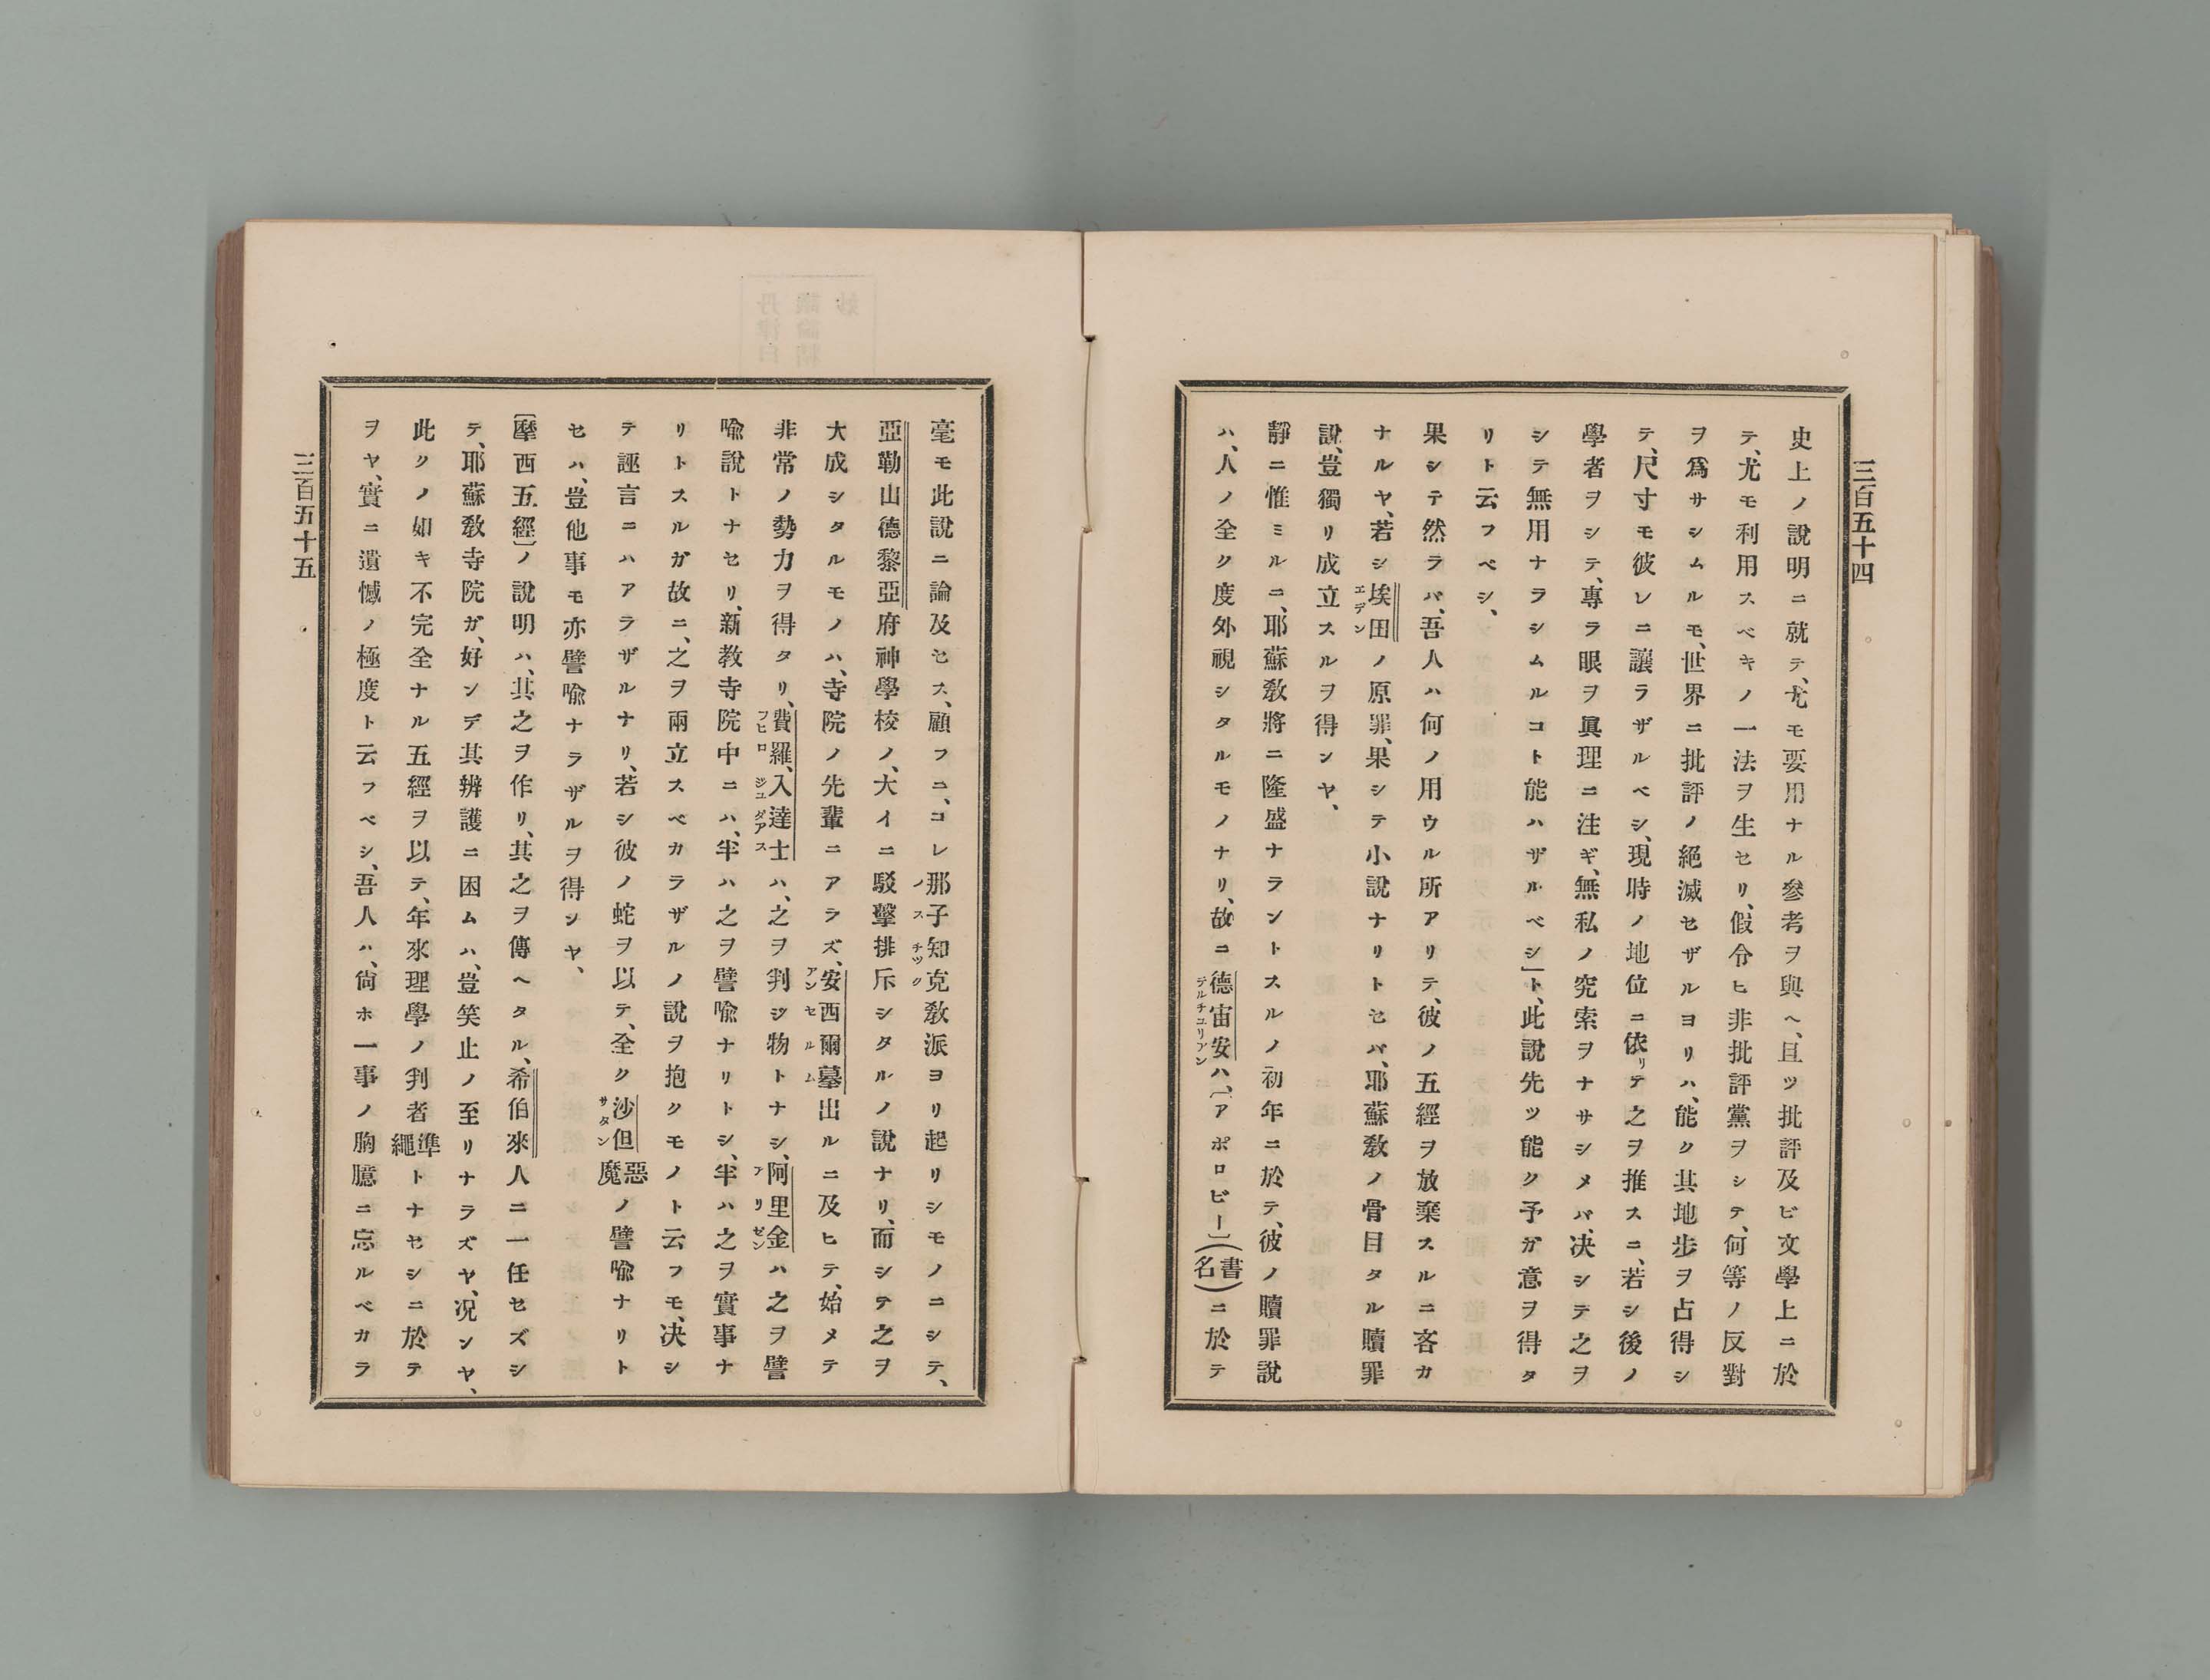 三百五十四
史上ノ說明ニ就テ、尤モ要用ナル參考ヲ與ヘ、且ツ批評及ビ文學上ニ於
テ、尤モ利用スベキノ一法ヲ生セリ、假令ヒ非批評黨ヲシテ、何等ノ反對
ヲ爲サシムルモ、世界ニ批評ノ絕滅セザルヨリハ、能ク其地步ヲ占得シ
テ、尺寸モ彼レニ讓ラザルベシ、現時ノ地位ニ依リテ之ヲ推スニ、若シ後ノ
學者ヲシテ、專ラ眼ヲ眞理ニ注ギ、無私ノ究索ヲナサシメバ、决シテ之ヲ
シテ無用ナラシムルコト能ハザルベシ」ト、此說先ツ能ク予ガ意ヲ得タ
リト云フベシ、
果シテ然ラバ、吾人ハ何ノ用ウル所アリテ、彼ノ五經ヲ放棄スルニ吝カ
ナルヤ、若シ埃田エデンノ原罪、果シテ小說ナリトセバ、耶蘇敎ノ骨目タル贖罪
說、豈獨リ成立スルヲ得ンヤ、
靜ニ惟ミルニ、耶蘇敎將ニ隆盛ナラントスルノ初年ニ於テ、彼ノ贖罪說
ハ、人ノ全ク度外視シタルモノナリ、故ニ德宙安テルチユリアンハ、〔アポロビー〕(書名)ニ於テ
毫モ此說ニ論及セス、顧フニ、コレ那子知克ノスチツク敎派ヨリ起リシモノニシテ、
亞勒山德黎亞府神學校ノ、大イニ駁擊排斥シタルノ說ナリ、而シテ之ヲ
大成シタルモノハ、寺院ノ先輩ニアラズ、安西爾墓アンセルム出ルニ及ヒテ、始メテ
非常ノ勢力ヲ得タリ、費羅フヒロ、入達士ジユダアスハ、之ヲ判ジ物トナシ、阿里金アリゼンハ之ヲ譬
喩說トナセリ、新敎寺院中ニハ、半ハ之ヲ譬喩ナリトシ、半ハ之ヲ實事ナ
リトスルガ故ニ、之ヲ兩立スベカラザルノ說ヲ抱クモノト云フモ、决シ
テ誣言ニハアラザルナリ、若シ彼ノ蛇ヲ以テ、全ク沙但サタン惡魔ノ譬喩ナリト
セハ、豈他事モ亦譬喩ナラザルヲ得シヤ、
〔摩西五經〕ノ說明ハ、其之ヲ作リ、其之ヲ傳ヘタル、希伯來人ニ一任セズシ
テ、耶蘇敎寺院ガ、好ンデ其辨護ニ困ムハ、豈笑止ノ至リナラズヤ、况ンヤ、
此クノ如キ不完全ナル五經ヲ以テ、年來理學ノ判者準繩トナセシニ於テ
ヲヤ、實ニ遺憾ノ極度ト云フベシ、吾人ハ、尙ホ一事ノ胸臆ニ忘ルベカラ
三百五十五